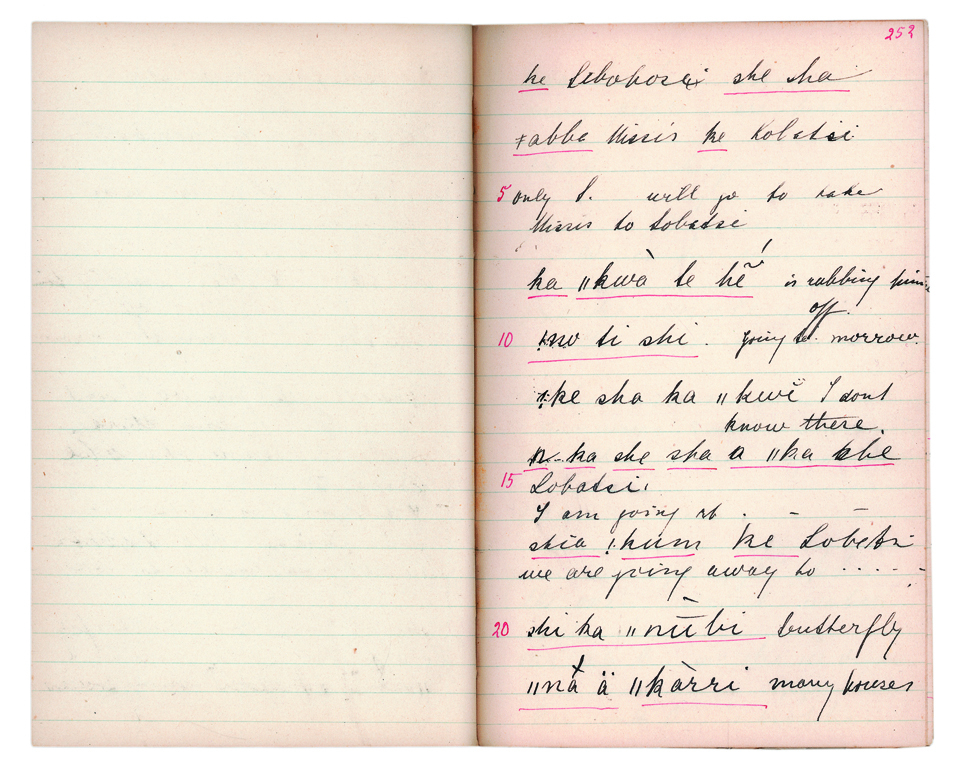 252
ke Lebobosi ske sha
ǂabba Missis ke Kobatsi
5 only I. will go to take
Missis to Lobatsi
ka ǁkwà te hě is rubbing
off.
10 ti shi. going to morrow.
ke sha ka ǁkwě I dont
know there.
ka she sha a ǁka
15 Lobatsi.
I am going
shia !kum ke Lobatsi
we are going away to .....
20 shi ka ǁnūbi butterfly
ǁná ä ǁkàrri many houses